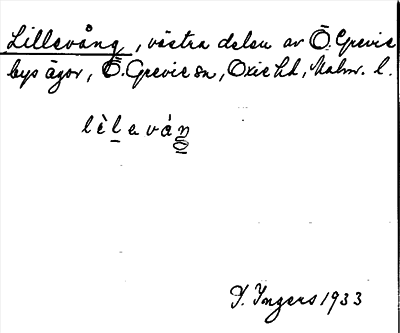 Lillevång, västra delen av Ö. Grevie
bys ägor, Ö. Grevie sn, Oxie hd, Malm. l.
lìlevåŋ
I. Ingers 1933